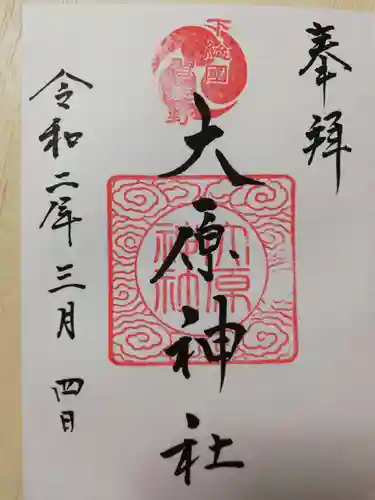 奉拝
下総国
習志野
大原神社
大原
神社
令和二年三月四日